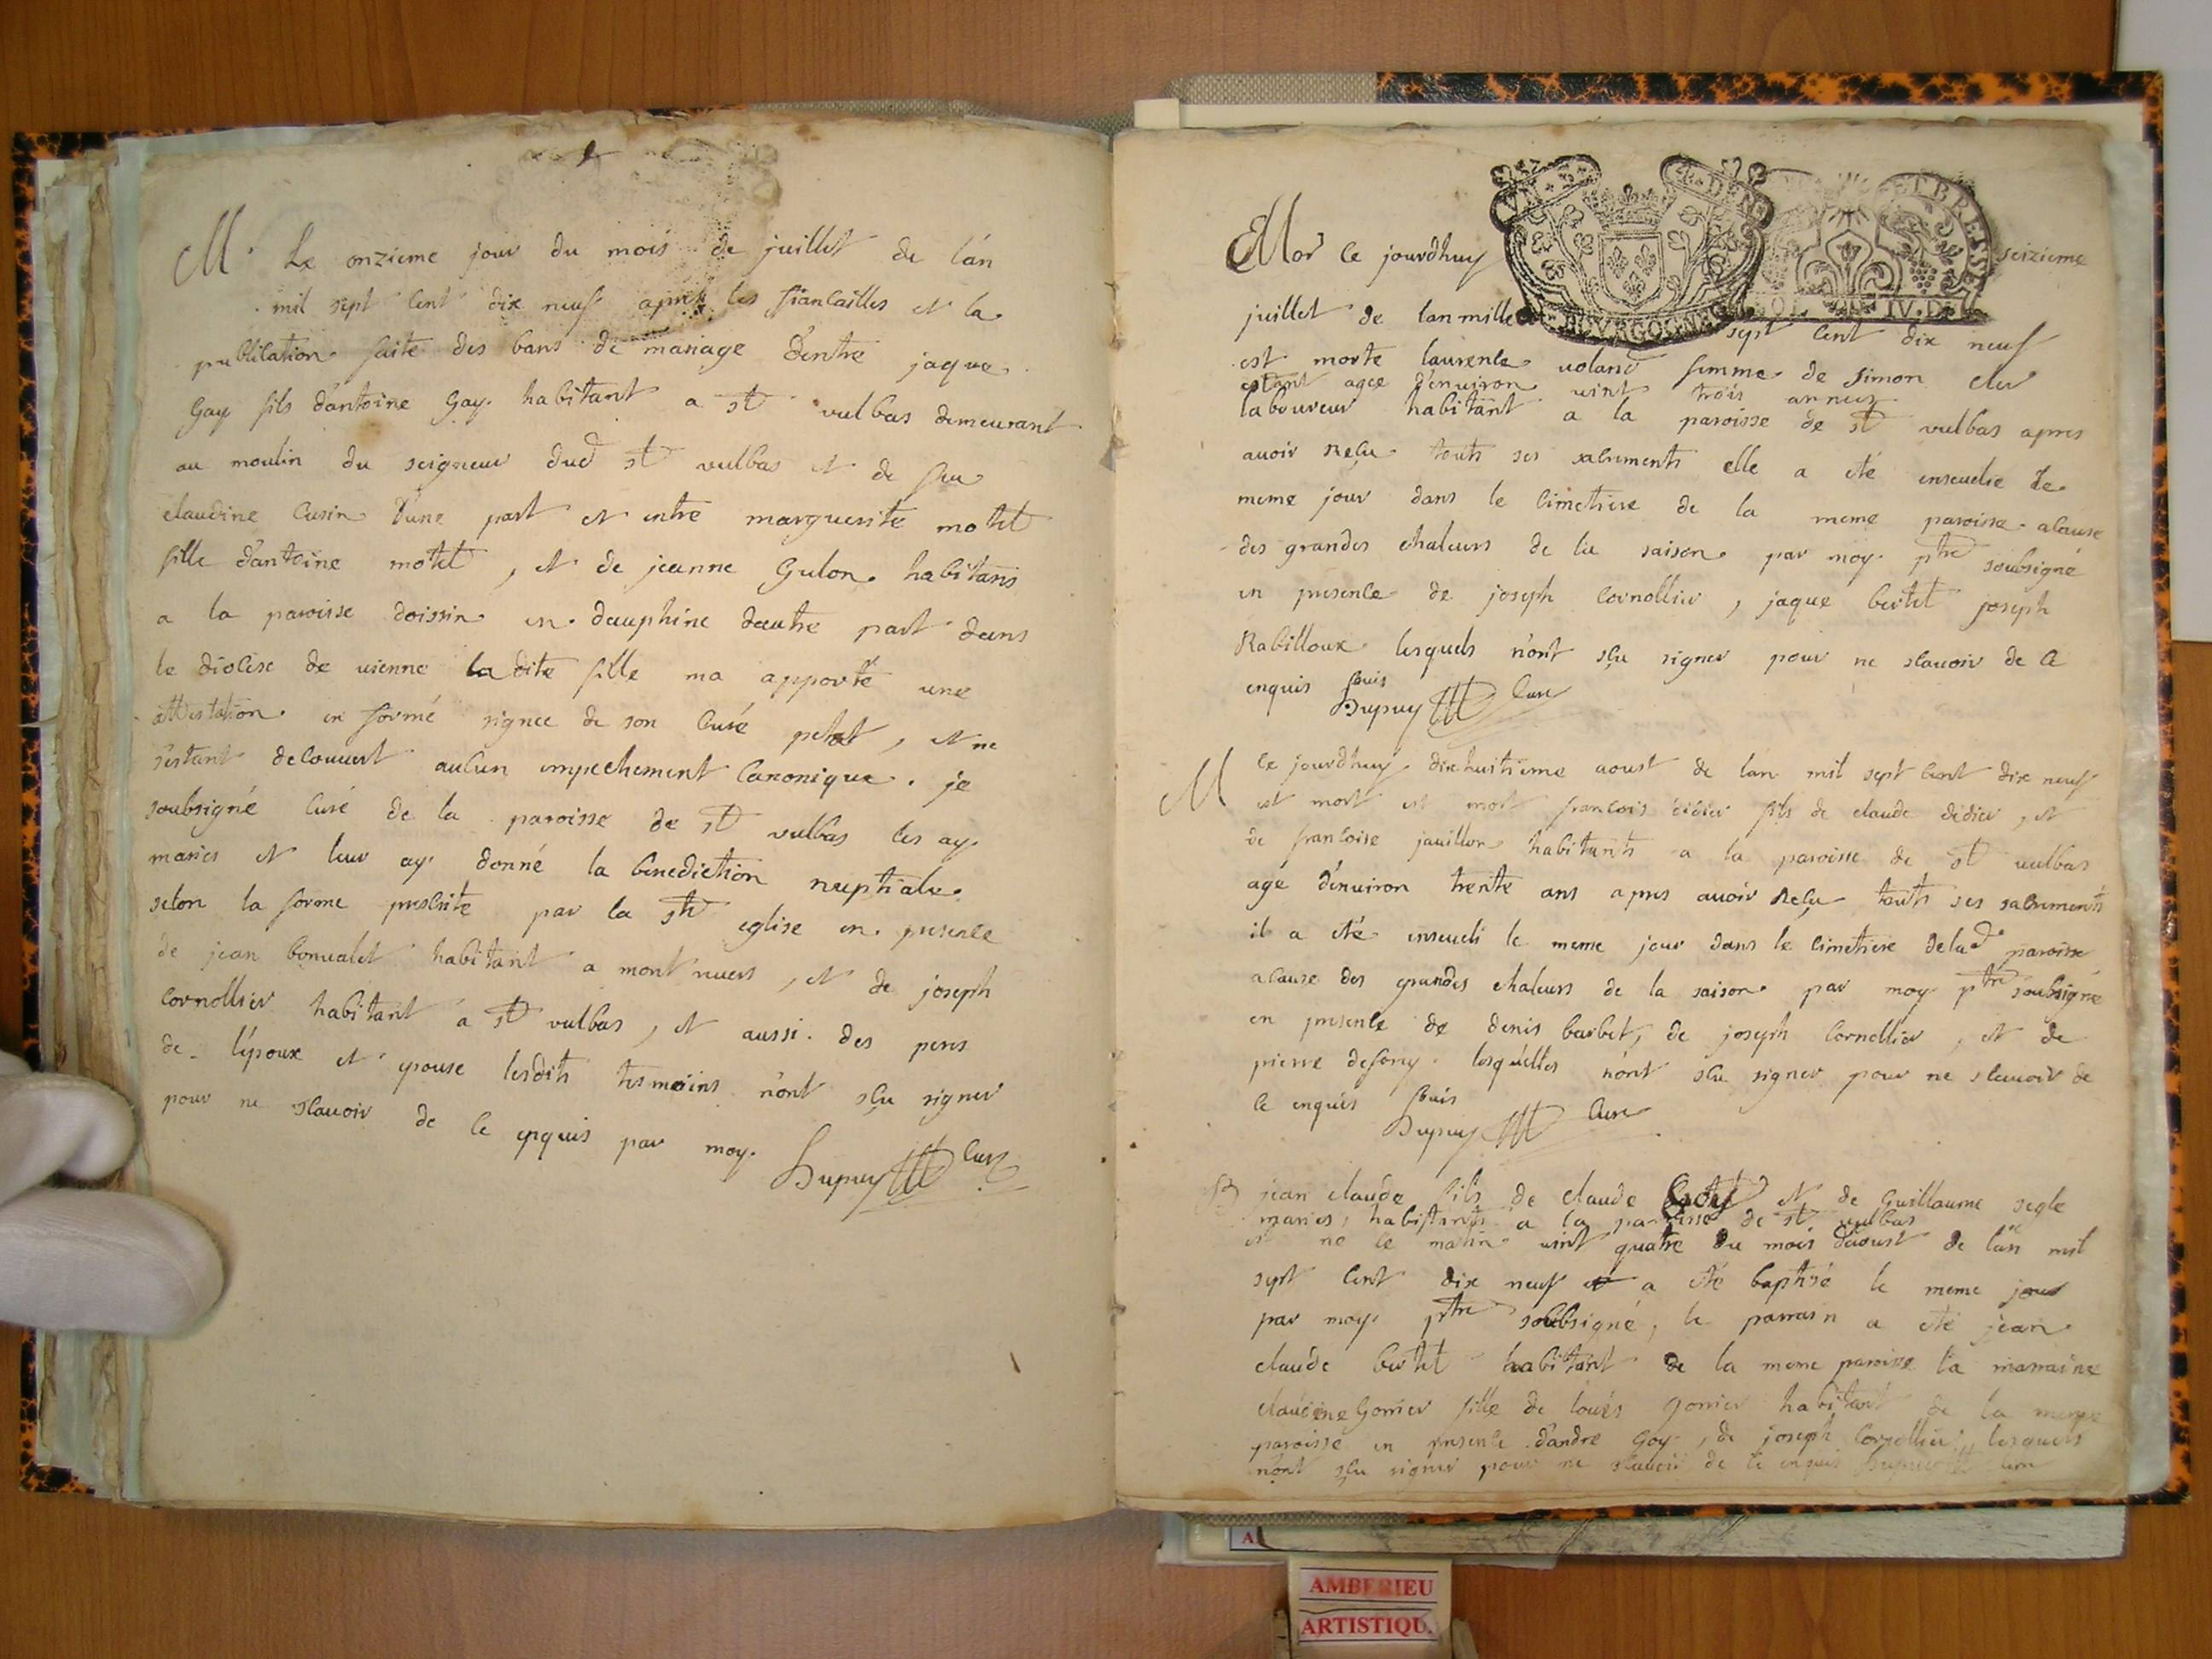 M. Le onzieme jour du mois de juillet de lán
mil sept cent dix neuf aprés les fiancailles et la
publication faite des bans de mariage dentre jaque
Gay fils dantoine Gay habitant a st vulbas demeurant
au moulin du seigneur dud st vulbas et de feu
claudine Cusin dune part et entre marguerite motet
fille dantoine motet, et de jeanne Gulon habitans
a la paroisse doissin en dauphine dautre part dans
le diocese de vienne la dite fille ma apporté une
attestation en formé signee de son curé petet, et ne
s'estant decouvert aucun empechement Canonique. je
soubsigné curé de la paroisse de st vulbas les ay
maries et leur ay donné la benediction nuptiale
selon la forme prescrite par la ste eglise en presence
de jean bonvalet habitant a mont nuers, et de joseph
cornollier habitant á st vulbas, et aussi des peres
de lépoux et epouse lesdits tesmoins n'ont sçu signer
pour ne scavoir de ce enquis par moy.
Dupuy curé
Mor ce jourdhuy seizieme
VN DEN ET BRESSE
BOVRGOGNE SOL IV.D
juillet de lan mille sept cent dix neuf
est morte laurence voland femme de simon cler
estant agee denviron vint trois annees
laboureur habitant a la paroisse de st vulbas apres
avoir reçu touts ses sacrements elle a eté ensevelie le
meme jour dans le cimetiere de la meme paroisse acause
des grandes chaleurs de la saison par moy ptre soubsigné
en presence de joseph cornollier, jaque bertet joseph
Rabilloux lesquels n'ont sçu signer pour ne scavoir de ce
enquis suis
Dupuy Curé
M Ce jourdhuy dix huitieme aoust de lan mil sept cent dix neuf
est mort est mort francois didier fils de claude didier, et
de francoise javillon habitants a la paroisse de st vulbas
agé d'environ trente ans apres avoir reçu touts ses sacrements
il a eté enseveli le meme jour dans le cimetiere delad paroisse
acause des grandes chaleurs de la saison par moy ptre soubsigné
en presence de denis barbet, de joseph Cornollier, et de
pierre defory lesquelles n'ont sçu signer pour ne scavoir de
ce enquis suis
Dupuy Curé
B jean claude fils de claude et de Guillaume segle
maries, habitants a la paroisse de st vulbas
est né le matin vint quatre du mois daoust de lan mil
sept cent dix neuf et a eté baptisé le meme jour
par moy ptre soubsigné, le parrain a eté jean
claude bertet habitant de la meme paroisse la marraine
claudine Gonier fille de louis gonier habitant de la meme
paroisse en presence dandre Goy, de joseph Cornollier lesquels
n'ont sçu signer pour ne scavoir de ce enquis Dupuy
AMBERIEU
ARTISTIQU.